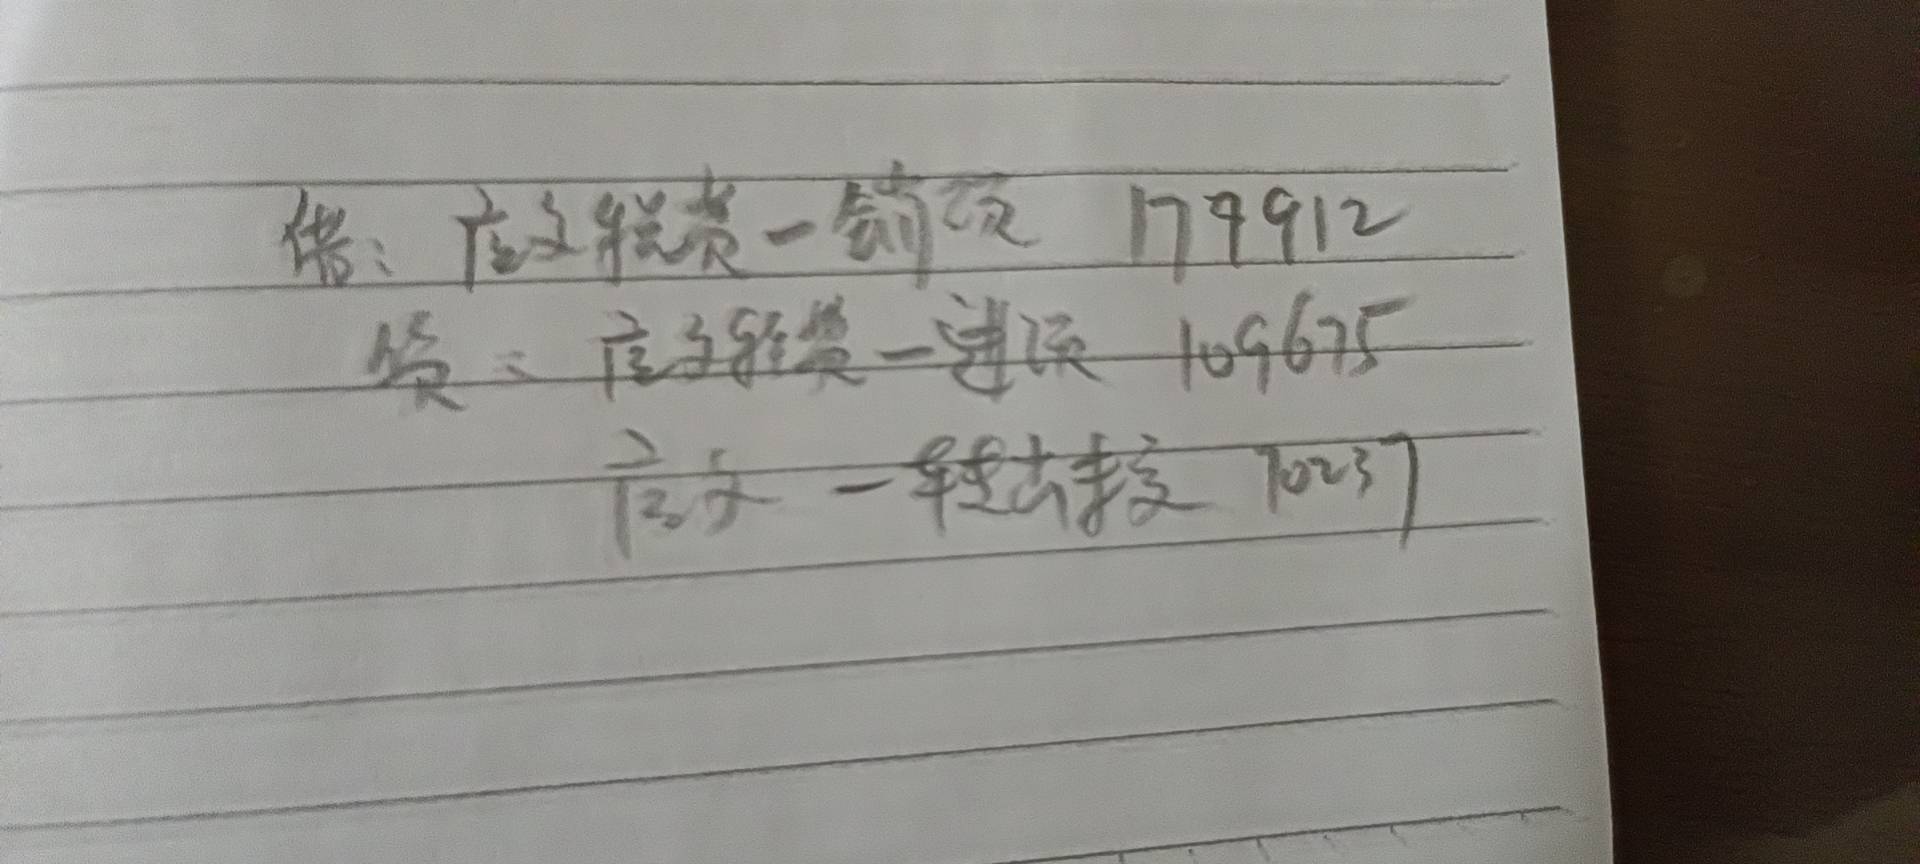 借：应交税费一销项 179912
贷：应交税费一进项 109675
应交一转出未交 70237